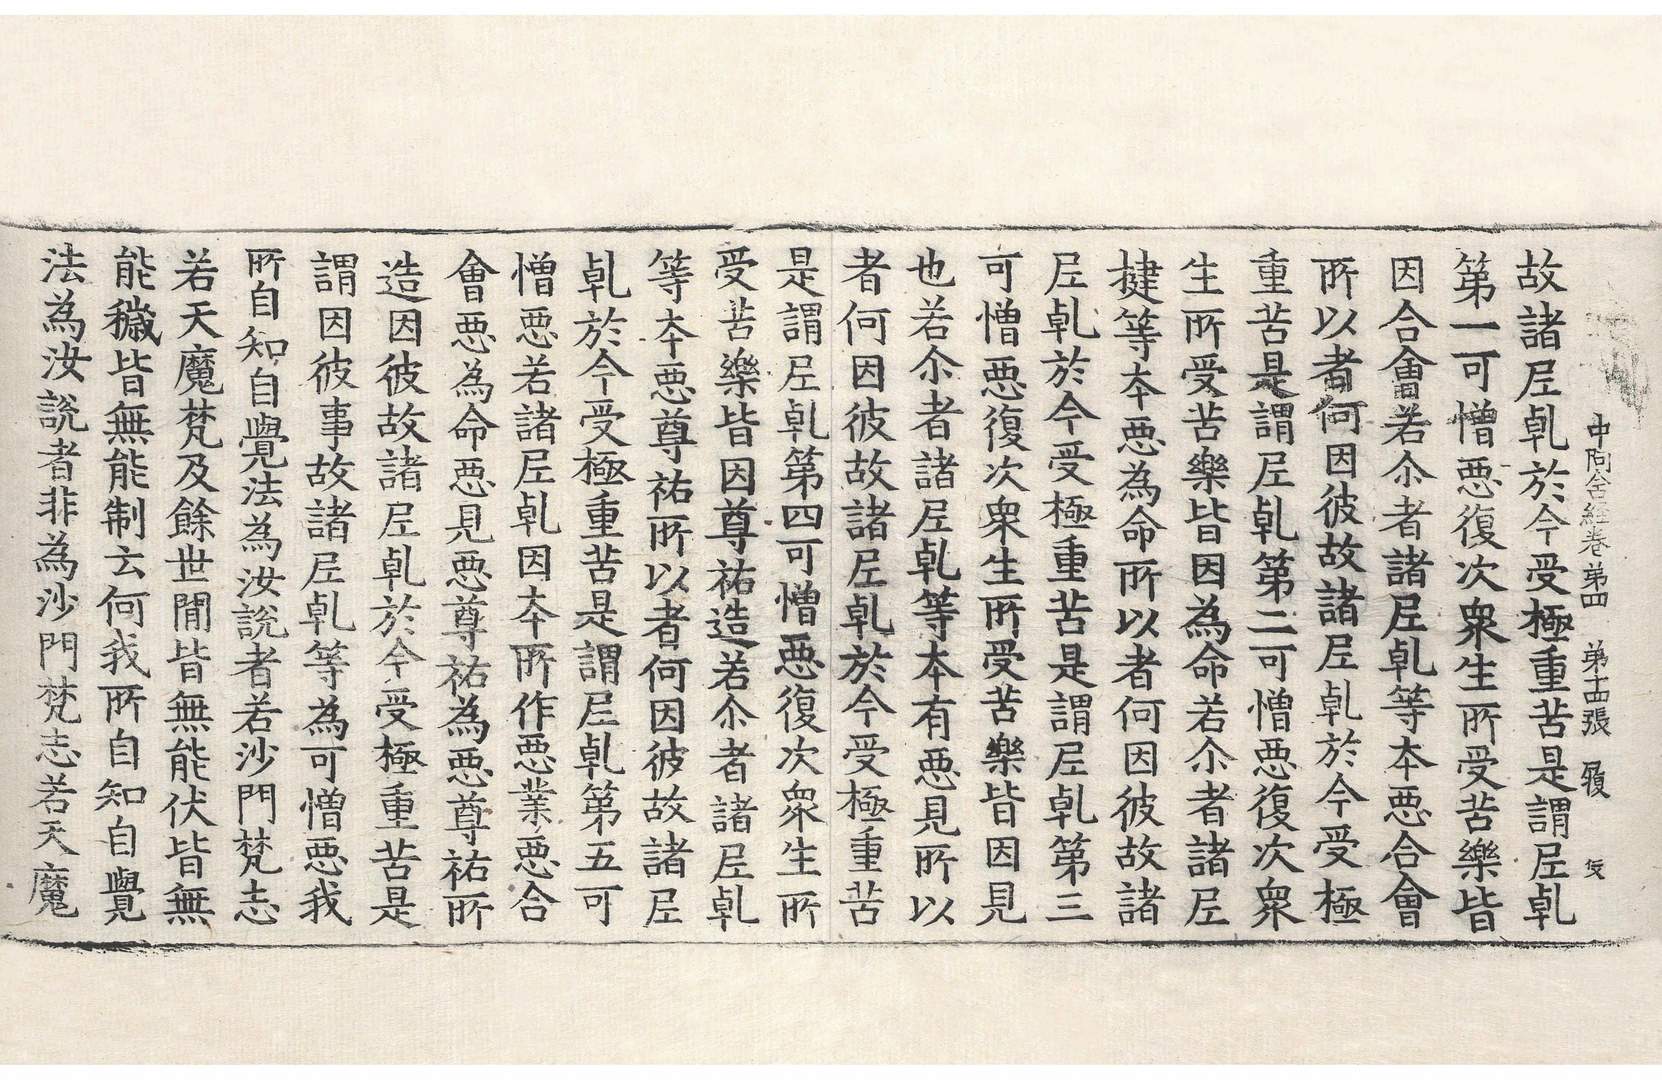 中阿含経卷第四 第十四張 履
故諸尼乹於今受極重苦是謂尼乹
第一可憎悪復次衆生所受苦樂皆
因合會若尒者諸尼乹等夲悪合會
所以者何因彼故諸尼乹於今受極
重苦是謂尼乹第二可憎悪復次衆
生所受苦樂皆因為命若尒者諸尼
揵等夲悪為命所以者何因彼故諸
尼乹於今受極重苦是謂尼乹第三
可憎悪復次衆生所受苦樂皆因見
也若尒者諸尼乹等夲有悪見所以
者何因彼故諸尼乹於今受極重苦
是謂尼乹第四可憎悪復次衆生所
受苦樂皆因尊祐造若尒者諸尼乹
等夲悪尊祐所以者何因彼故諸尼
乹於今受極重苦是謂尼乹第五可
憎悪若諸尼乹因夲所作悪業悪合
會悪為命悪見悪尊祐為悪尊祐所
造因彼故諸尼乹於今受極重苦是
謂因彼事故諸尼乹等為可憎悪我
所自知自覺法為汝說者若沙門梵志
若天魔梵及餘世間皆無能伏皆無
能穢皆無能制云何我所自知自覺
法為汝說者非為沙門梵志若天魔